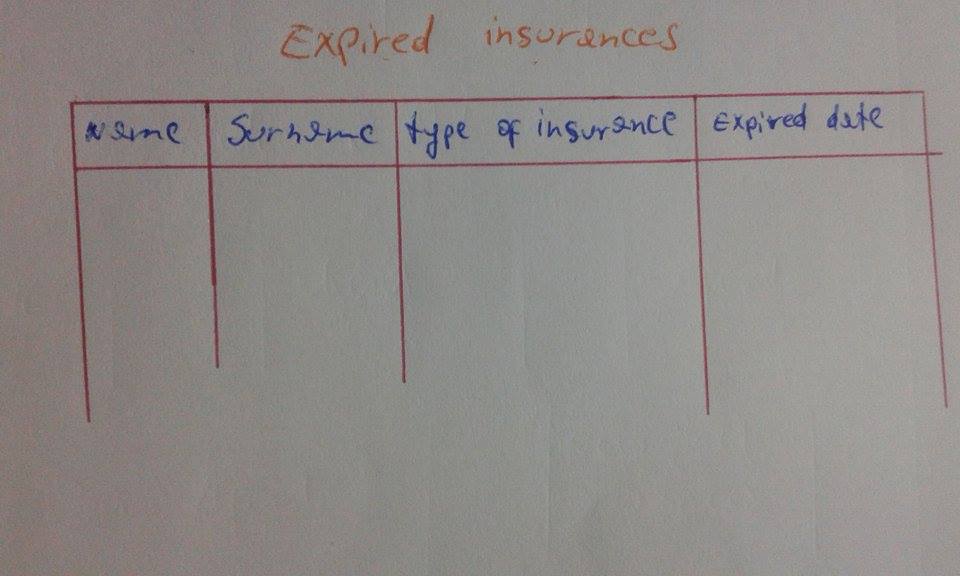 Expired insurances
Name Surname type of insurance Expired date